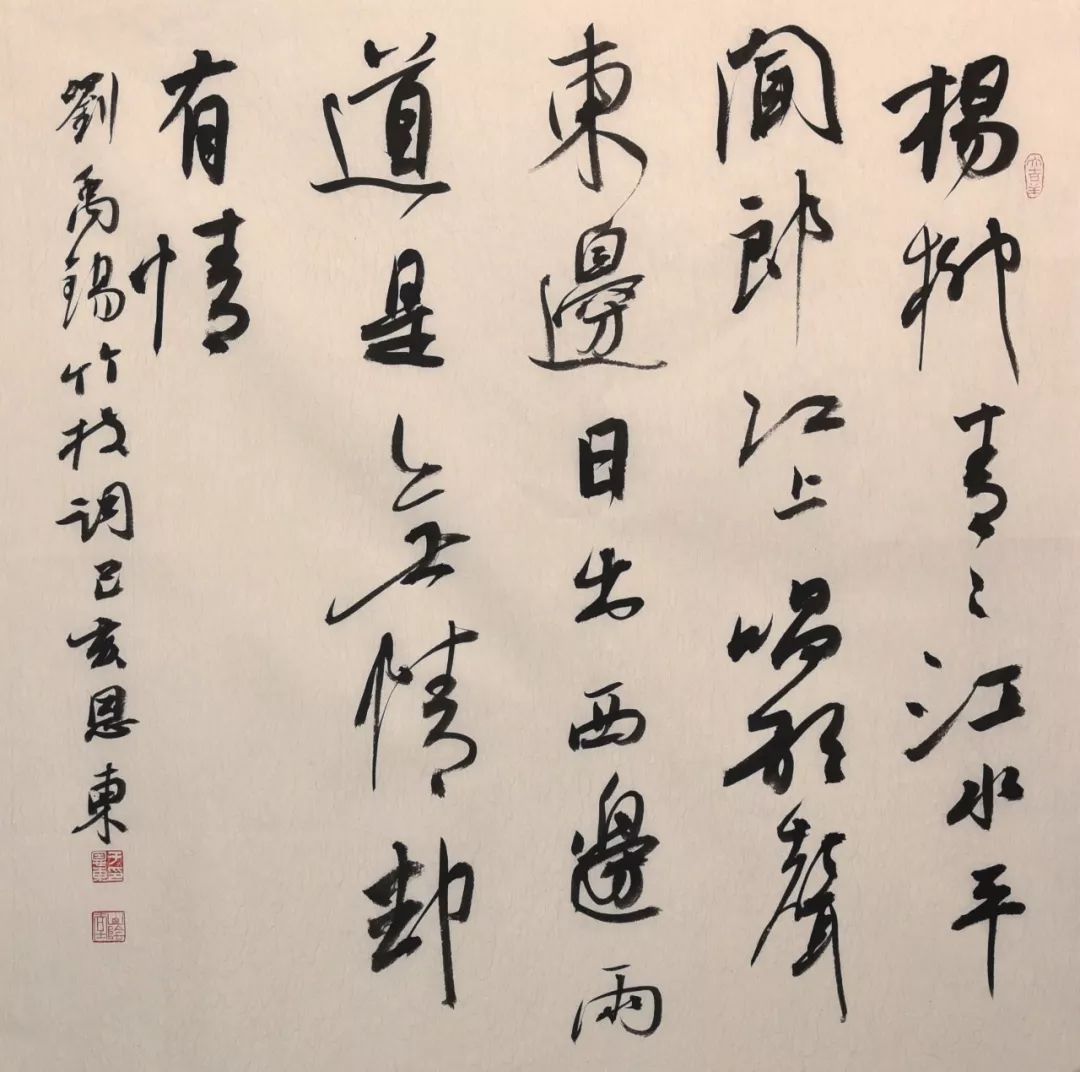 大吉羊
楊柳青〻江水平
聞郎江上唱歌聲
東邊日出西邊雨
道是無情却
有情
劉禹錫竹枝調己亥恩東